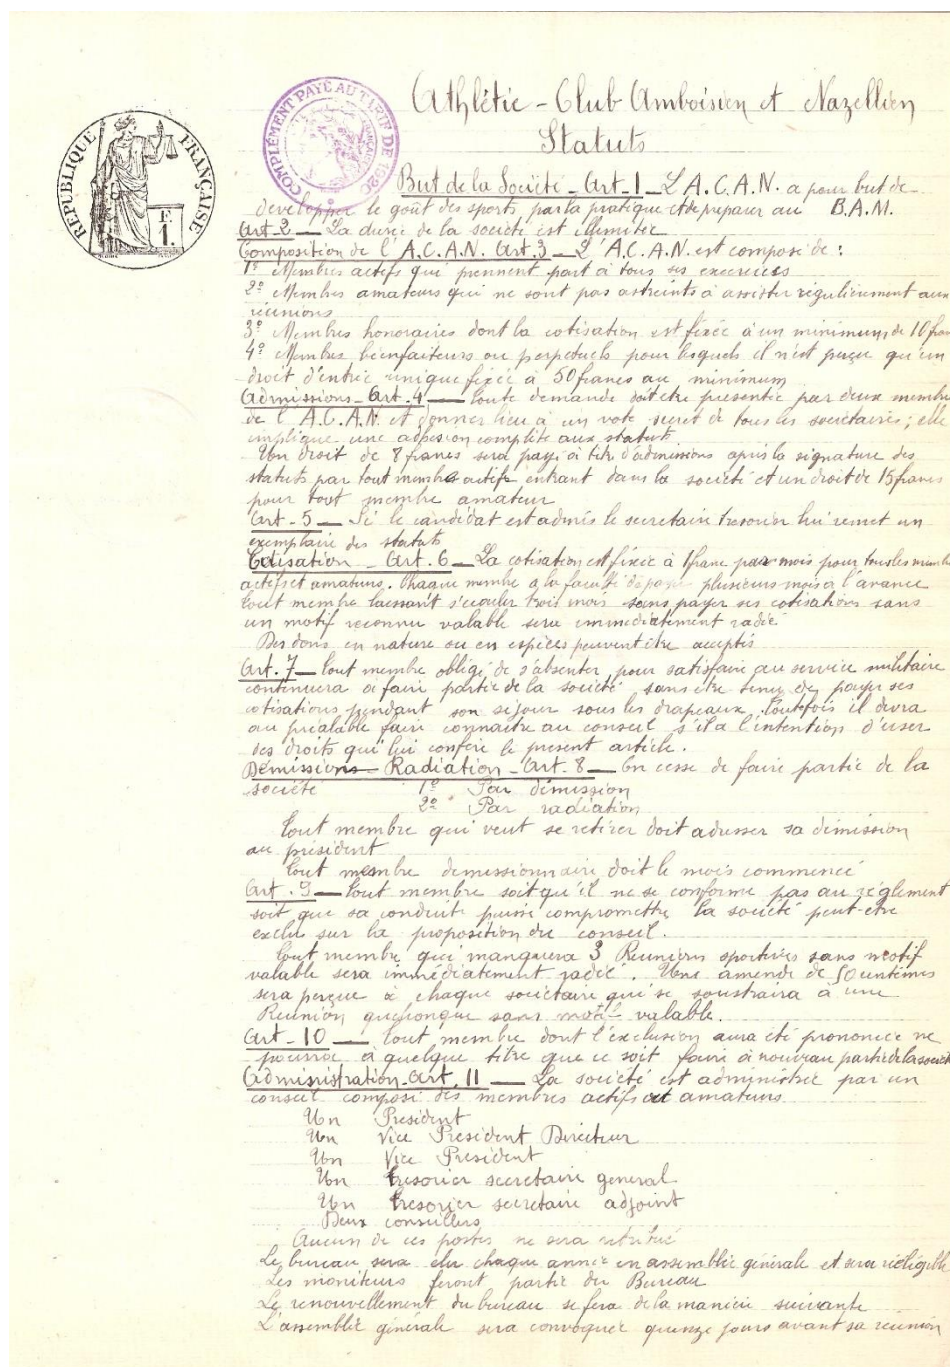 RÉPUBLIQUE FRANÇAISE
F.
1.
COMPLÉMENT PAYÉ AU TARIF DE 1920
Athlétic - Club Amboisien et Nazellien
Statuts
But de la Société - Art. 1 - L'A.C.A.N. a pour but de
développer le goût des sports par la pratique et de préparer au B.A.M.
Art 2 - La durée de la société est illimitée
Composition de l'A.C.A.N. Art. 3 - L'A.C.A.N. est composé de :
1º Membres actifs qui prennent part à tous ses exercices
2º Membres amateurs qui ne sont pas astreints à assister régulièrement aux
réunions
3º Membres honoraires dont la cotisation est fixée à un minimum de 10 francs
4º Membres bienfaiteurs ou perpetuels pour lesquels il n'est perçu qu'un
droit d'entrée unique fixée à 50 francs au minimum
Admissions - Art. 4 - Toute demande doit être présentée par deux membres
de l'A.C.A.N. et donner lieu à un vote secret de tous les sociétaires ; elle
implique une adhésion complète aux statuts
Un droit de 8 francs sera payé à titre d'admissions après la signature des
statuts par tout membre actif entrant dans la société et un droit de 15 francs
pour tout membre amateur
Art - 5 - Si le candidat est admis le secretaire tresorier lui remet un
exemplaire des statuts
Cotisation - Art. 6 - La cotisation est fixée à 1 franc par mois pour tous les membres
actifs et amateurs. Chaque membre a la faculté de payer plusieurs mois à l'avance
Tout membre laissant s'écouler trois mois sans payer ses cotisations sans
un motif reconnu valable sera immédiatement radié
Des dons en nature ou en espèces peuvent être acceptés
Art. 7 - Tout membre obligé de s'absenter pour satisfaire au service militaire
continuera à faire partie de la société sans être tenu de payer ses
cotisations pendant son séjour sous les drapeaux. Toutefois il devra
au préalable faire connaître au conseil s'il a l'intention d'user
des droits qui lui confère le present article.
Démissions - Radiation - Art. 8 - On cesse de faire partie de la
société 1º Par démission
2º Par radiation
Tout membre qui veut se retirer doit adresser sa démission
au président
Tout membre demissionnaire doit le mois commencé
Art. 9 - Tout membre soit qu'il ne se conforme pas au réglement
soit que sa conduite puisse compromettre la société peut-être
exclu sur la proposition du conseil.
Tout membre qui manquera 3 Reunions sportives sans motif
valable sera immédiatement radié. Une amende de 50 centimes
sera perçue à chaque sociétaire qui se soustraira à une
Reunion quelconque sans motif valable.
Art - 10 - Tout membre dont l'exclusion aura été prononcée ne
pourra à quelque titre que ce soit faire à nouveau partie de la société
Administration - Art. 11 - La société est administrée par un
conseil composé des membres actifs et amateurs
Un President
Un Vice President Directeur
Un Vice President
Un tresorier secretaire general
Un tresorier secretaire adjoint
Deux conseillers
Aucun de ces postes ne sera rétribué
Le bureau sera élu chaque année en assemblée générale et sera rééligible
Les moniteurs feront partie du Bureau
Le renouvellement du bureau se fera de la manière suivante
L'assemblée générale sera convoquée quinze jours avant sa réunion